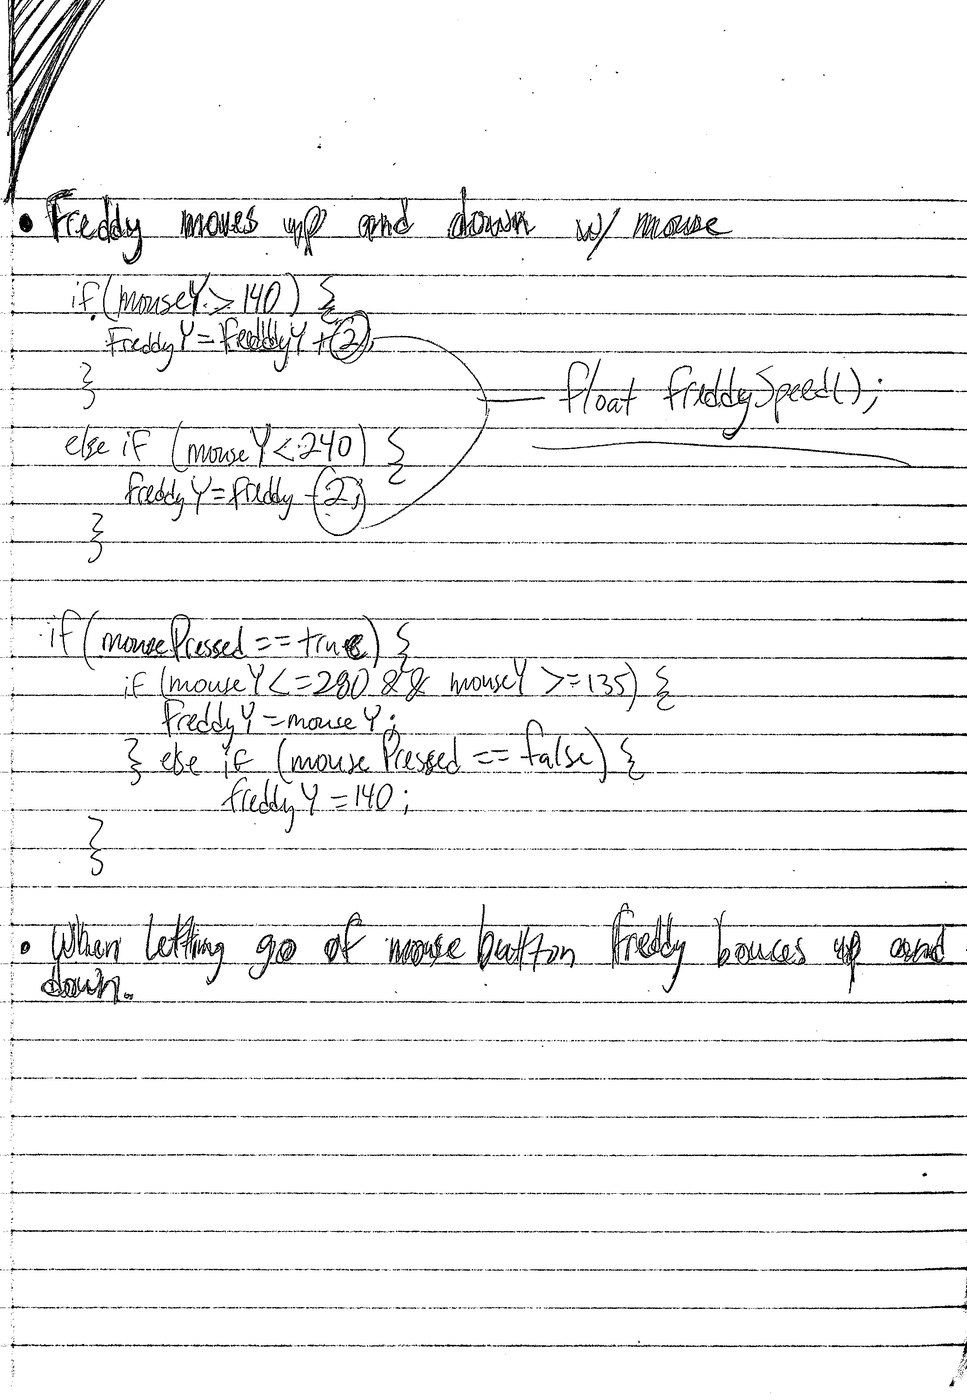 • Freddy moves up and down w/ mouse
if (mouseY > 140) {
FreddyY = FreddyY + 2;
}
float freddySpeed();
else if (mouseY < 240) {
freddyY = freddy - 2;
}
if (mousePressed == true) {
if (mouseY <= 280 && mouseY >= 135) {
freddyY = mouseY;
} else if (mousePressed == false) {
freddyY = 140;
}
• When letting go of mouse button Freddy bouces up and
down.